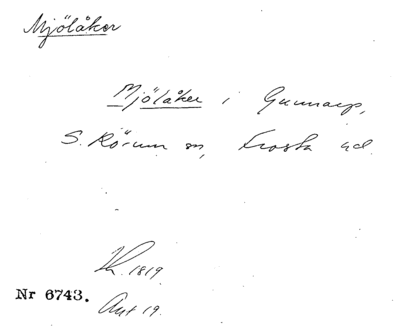 Mjölåker
Mjölåker i Gunnarp,
S. Rörum sn, Frosta hd.
Kr. 1819
Nr 6743.
Avt 19.